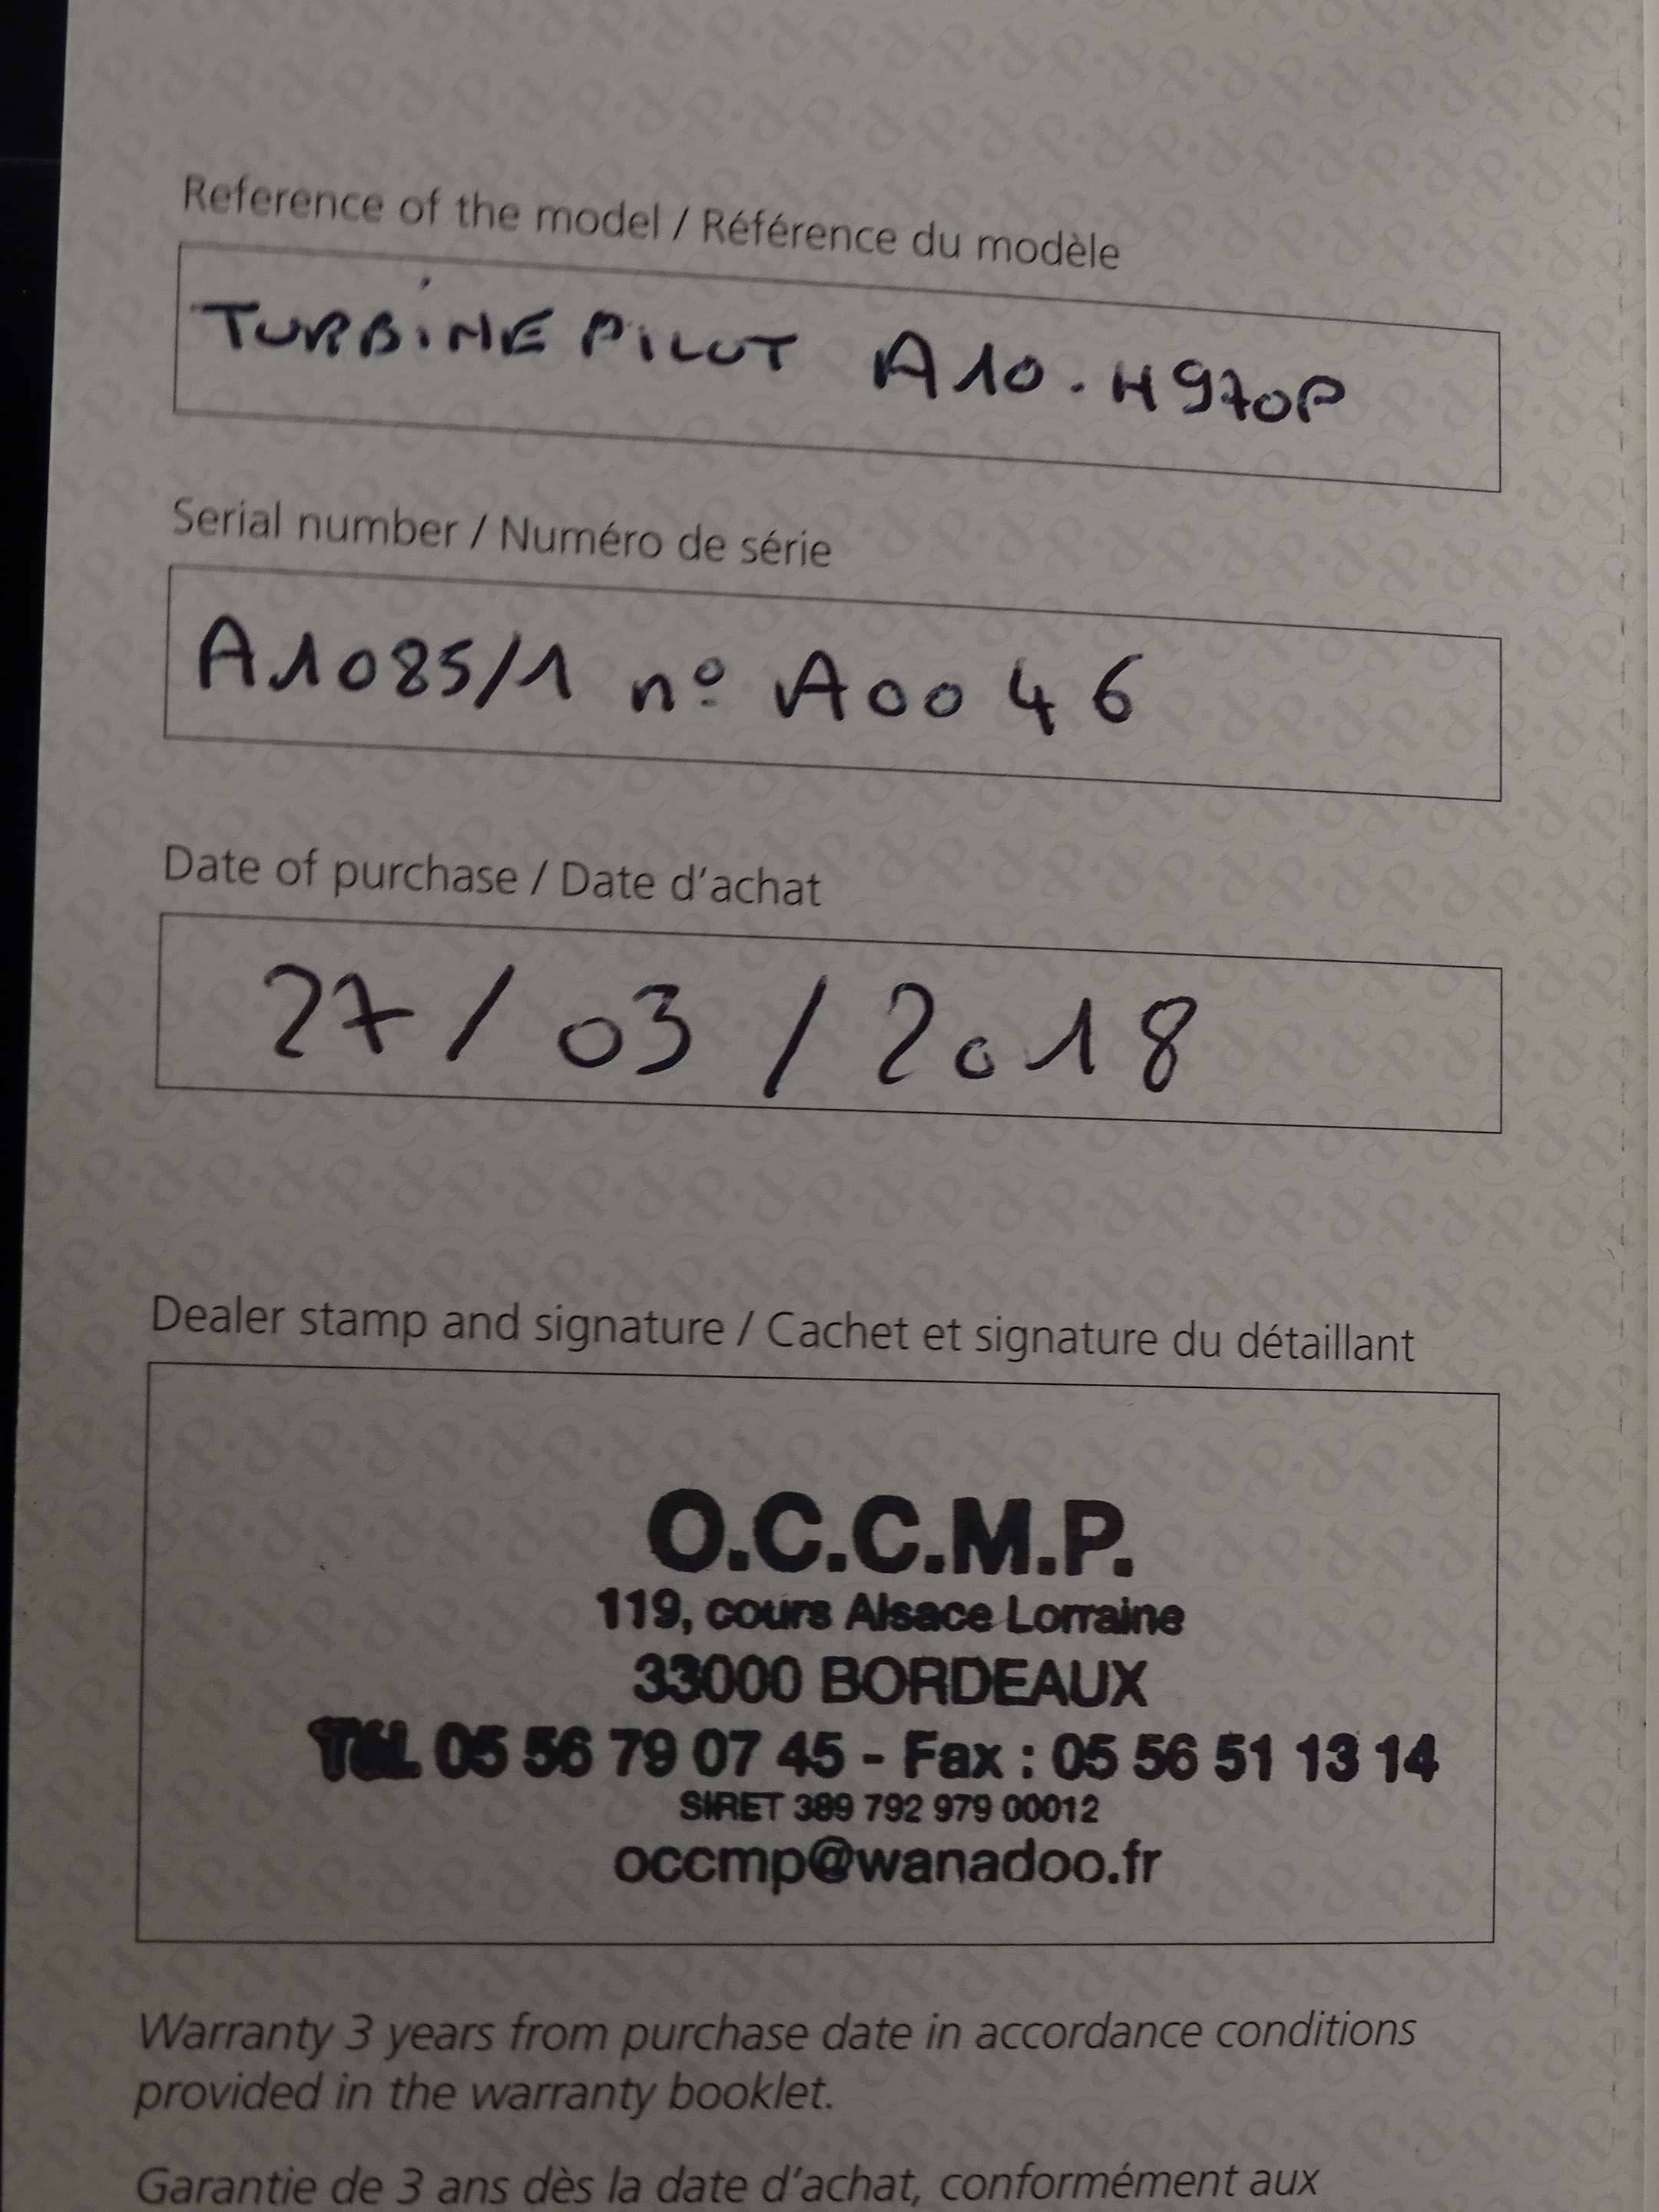 Reference of the model / Référence du modèle
TURBINE PILOT A10.H970P
Serial number / Numéro de série
A1085/1 nº A0046
Date of purchase / Date d'achat
27 / 03 / 2018
Dealer stamp and signature / Cachet et signature du détaillant
O.C.C.M.P.
119, cours Alsace Lorraine
33000 BORDEAUX
Tél. 05 56 79 07 45 - Fax : 05 56 51 13 14
SIRET 389 792 979 00012
occmp@wanadoo.fr
Warranty 3 years from purchase date in accordance conditions
provided in the warranty booklet.
Garantie de 3 ans dès la date d'achat, conformément aux